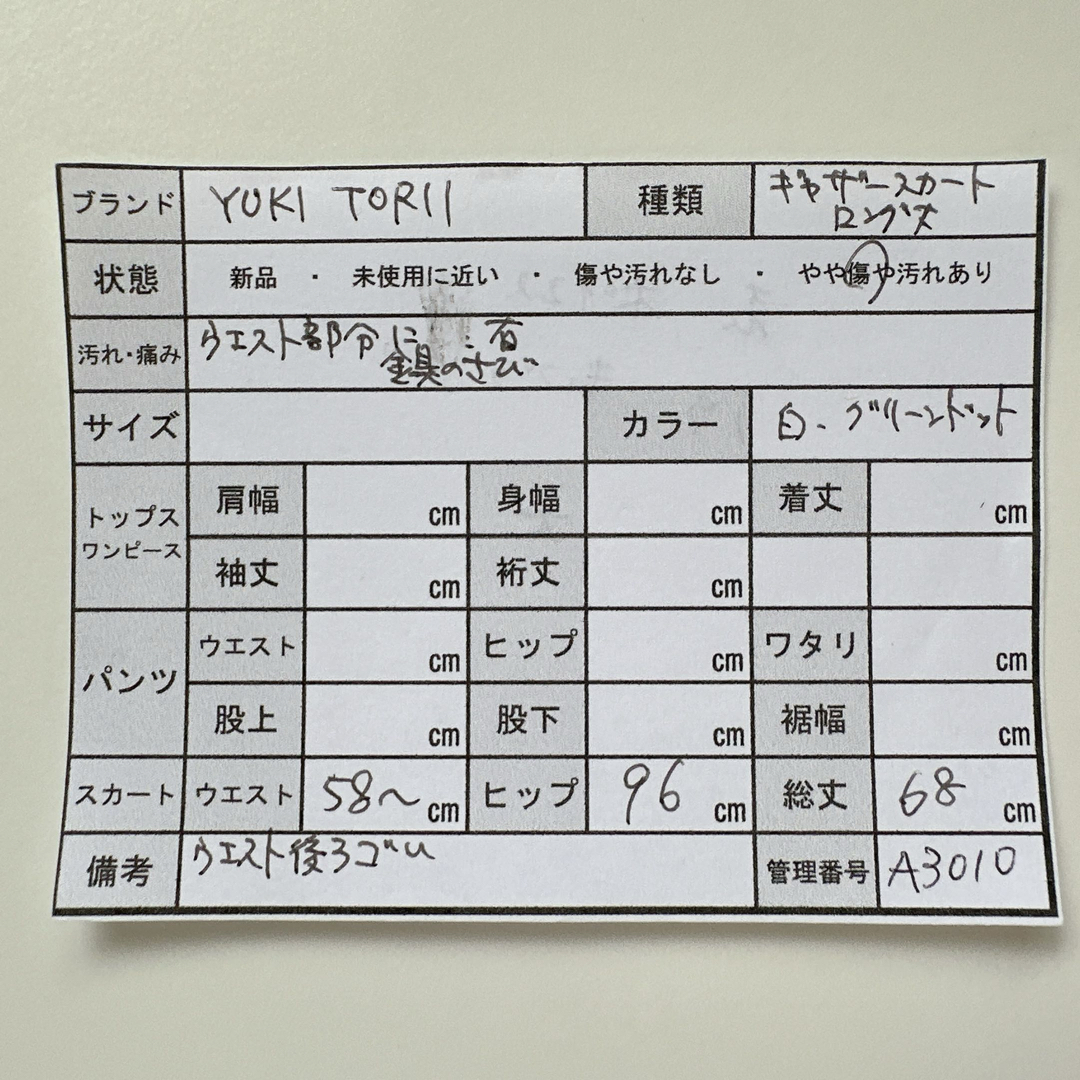 ブランド YUKI TORII 種類 ギャザースカート
ロング丈
状態 新品 ・ 未使用に近い ・ 傷や汚れなし ・ やや傷や汚れあり
汚れ・痛み ウエスト部分に 有
金具のさび
サイズ カラー 白、グリーンドット
トップス
ワンピース
肩幅 cm 身幅 cm 着丈 cm
袖丈 cm 裄丈 cm
パンツ
ウエスト cm ヒップ cm ワタリ cm
股上 cm 股下 cm 裾幅 cm
スカート ウエスト 58〜 cm ヒップ 96 cm 総丈 68 cm
備考 ウエスト後ろゴム 管理番号 A3010